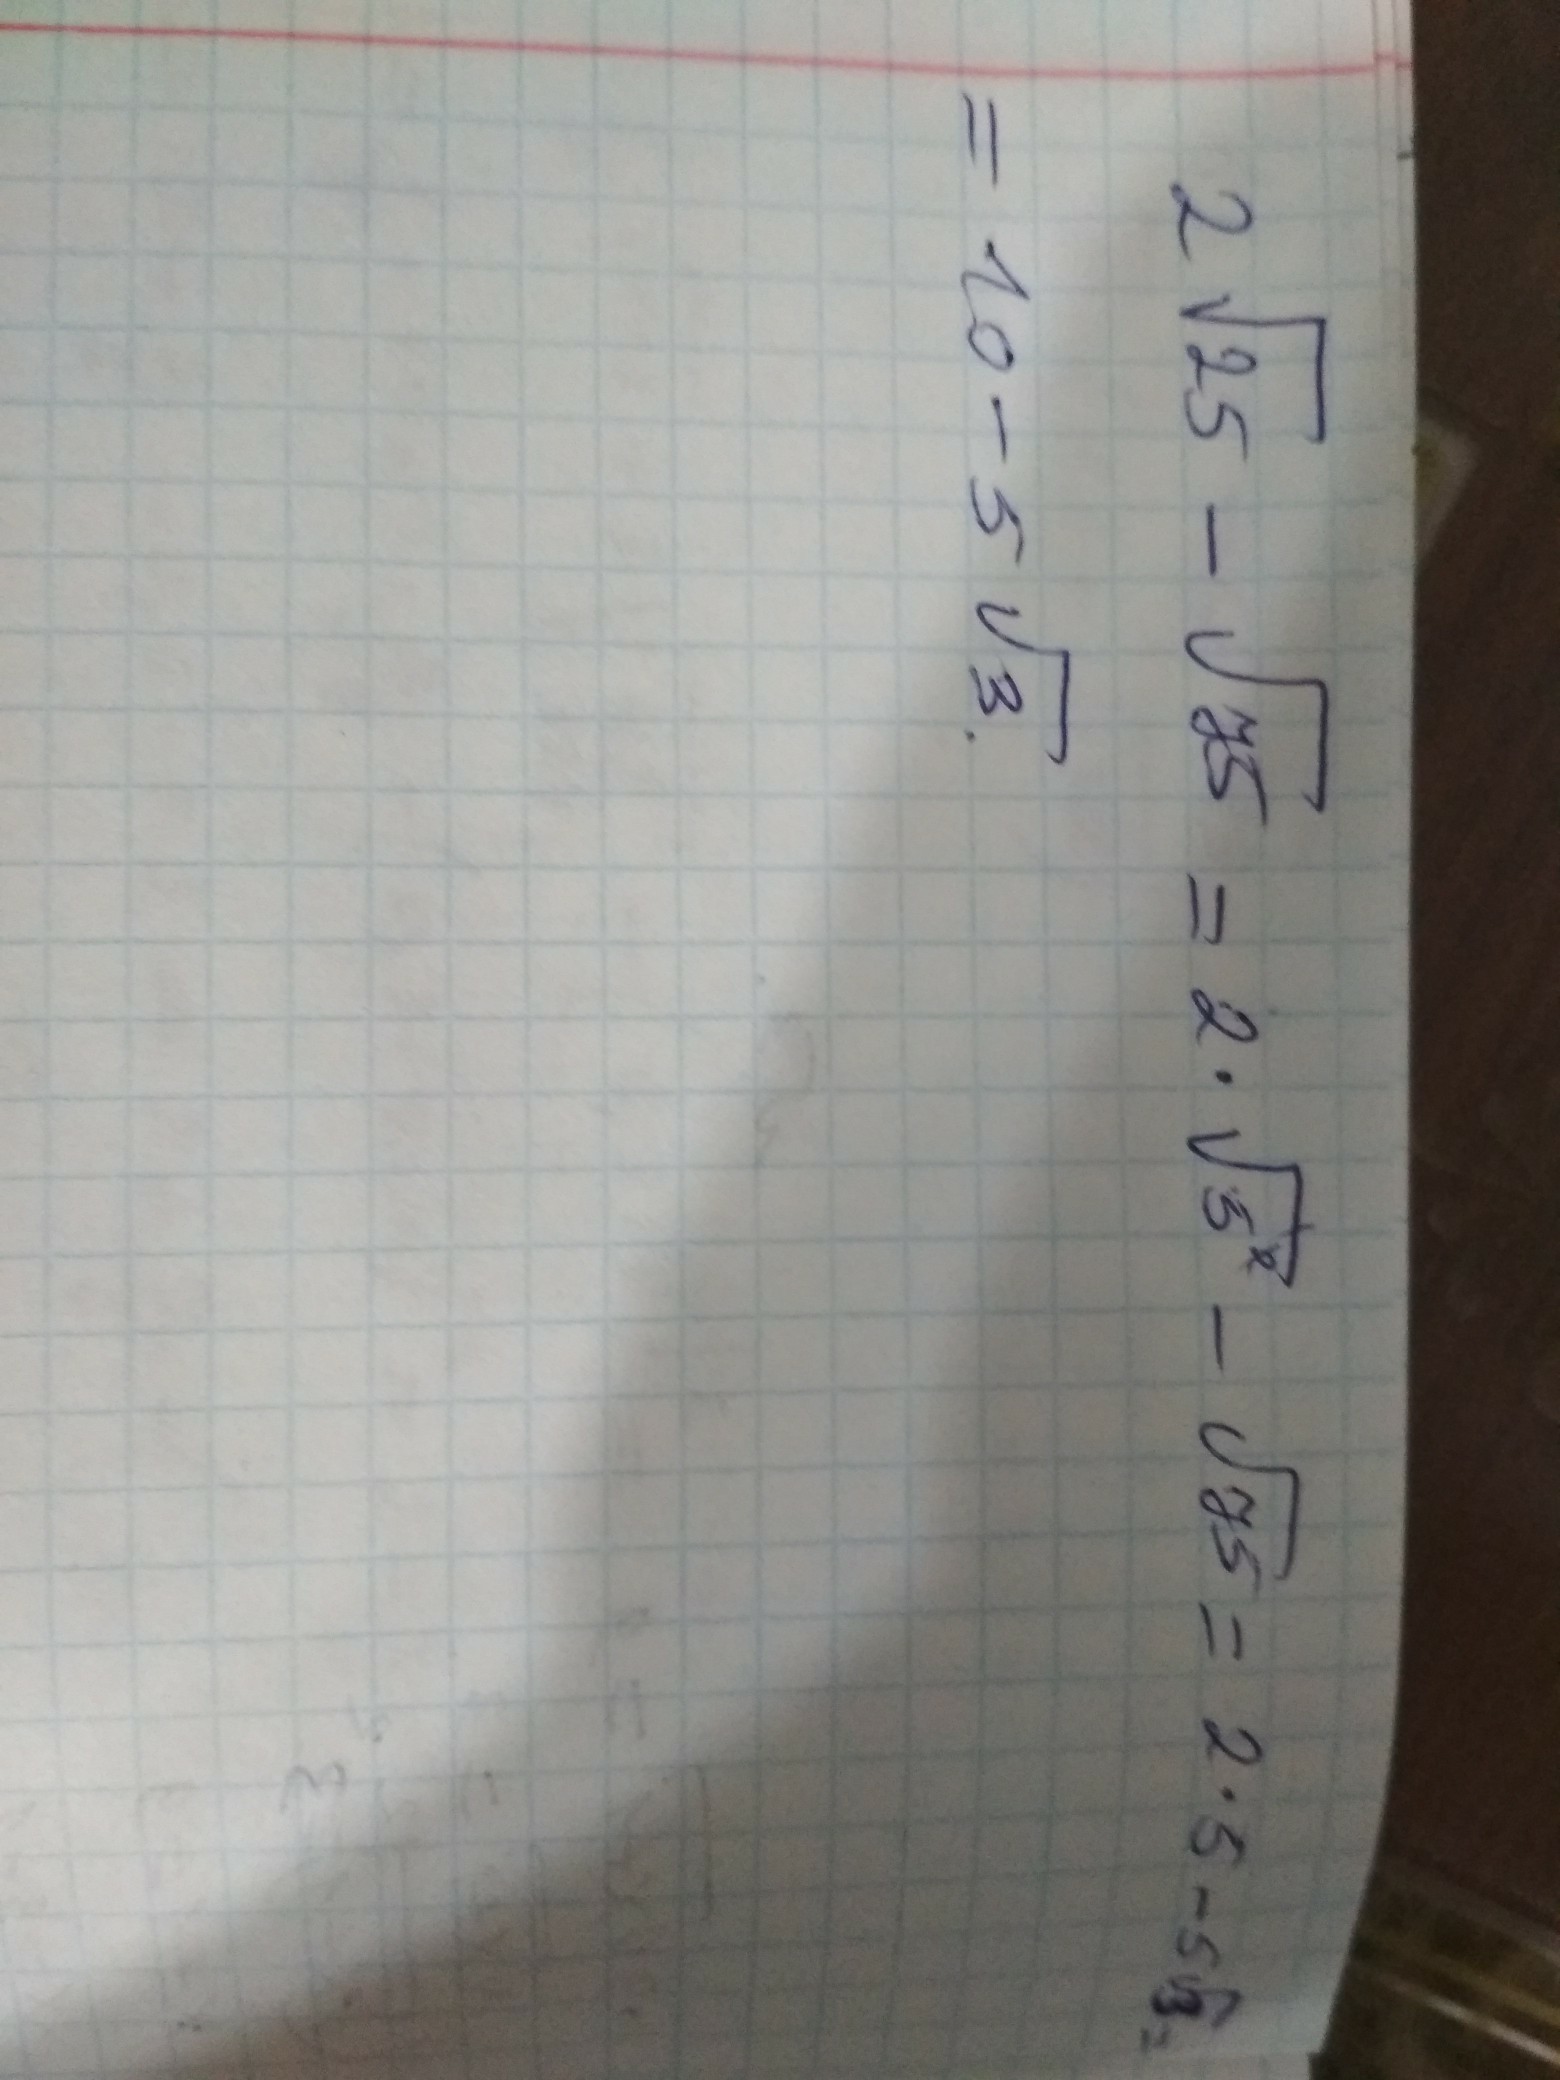 2√25 - √75 = 2·√5² - √75 = 2·5 - 5√3 =
= 10 - 5√3.